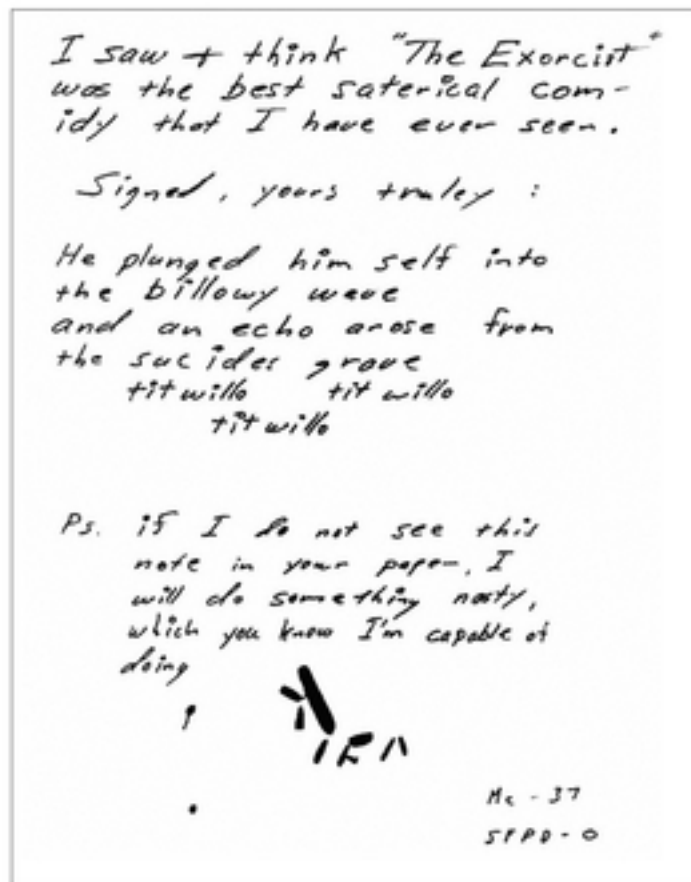 I saw + think "The Exorcist"
was the best saterical com-
idy that I have ever seen.
Signed, yours truley :
He plunged him self into
the billowy wave
and an echo arose from
the sucides grave
titwillo titwillo
titwillo
Ps. if I do not see this
note in your paper, I
will do something nasty,
which you know I'm capable of
doing
Me - 37
SFPD - 0